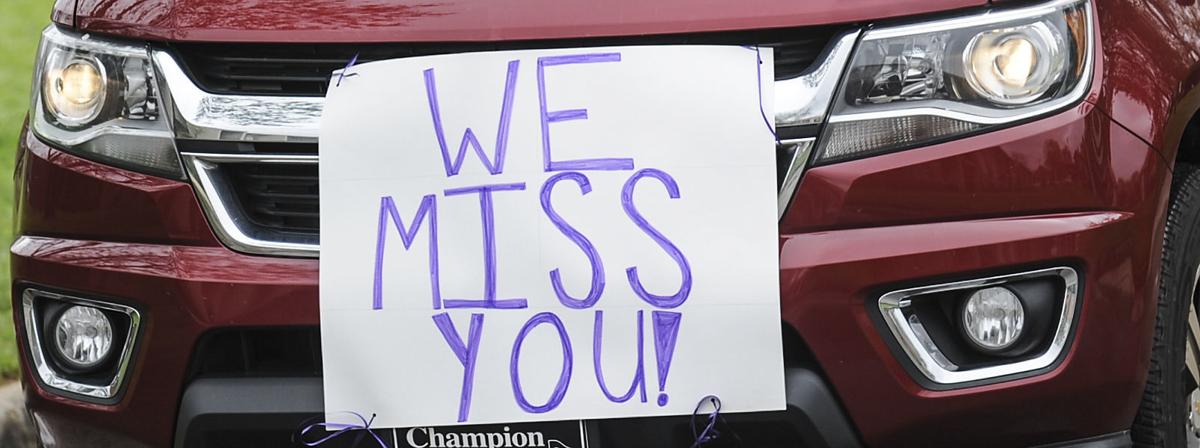 WE
MISS
YOU!
Champion